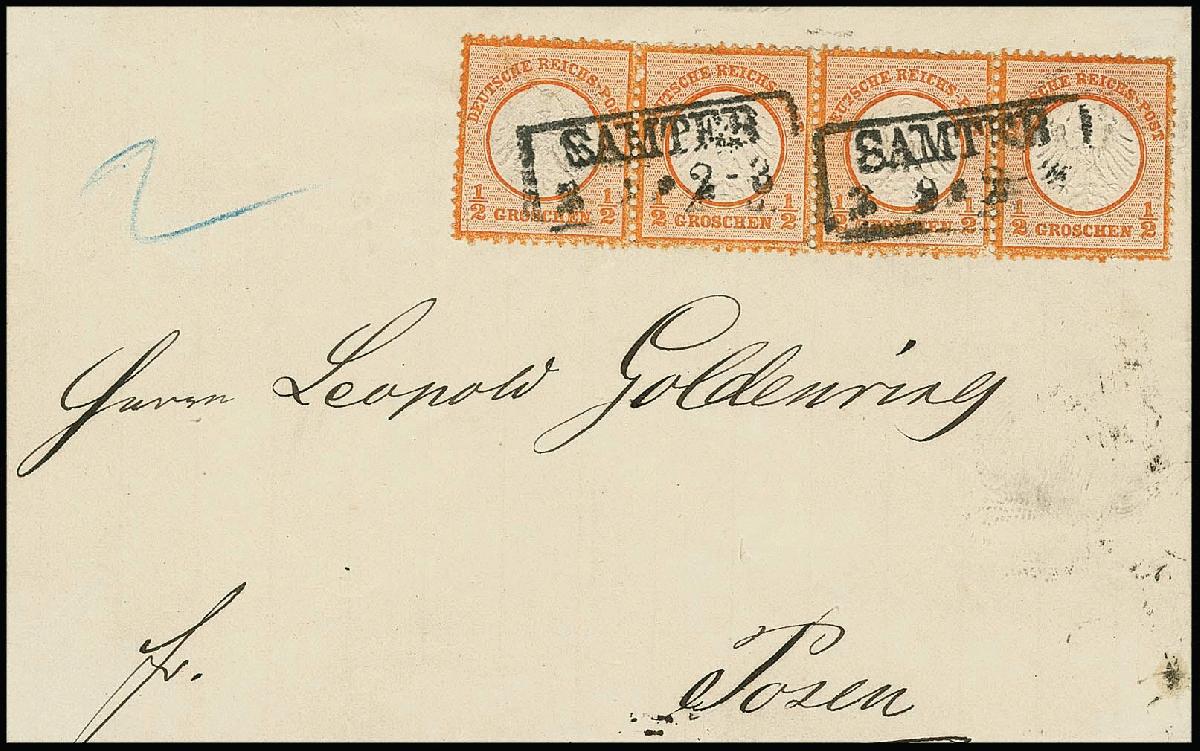 DEUTSCHE REICHS-POST DEUTSCHE REICHS-POST DEUTSCHE REICHS-POST DEUTSCHE REICHS-POST
SAMTER SAMTER
1/2 GROSCHEN 1/2 1/2 GROSCHEN 1/2 1/2 GROSCHEN 1/2 1/2 GROSCHEN 1/2
2
Herrn Leopold Goldenring
fr.
Posen